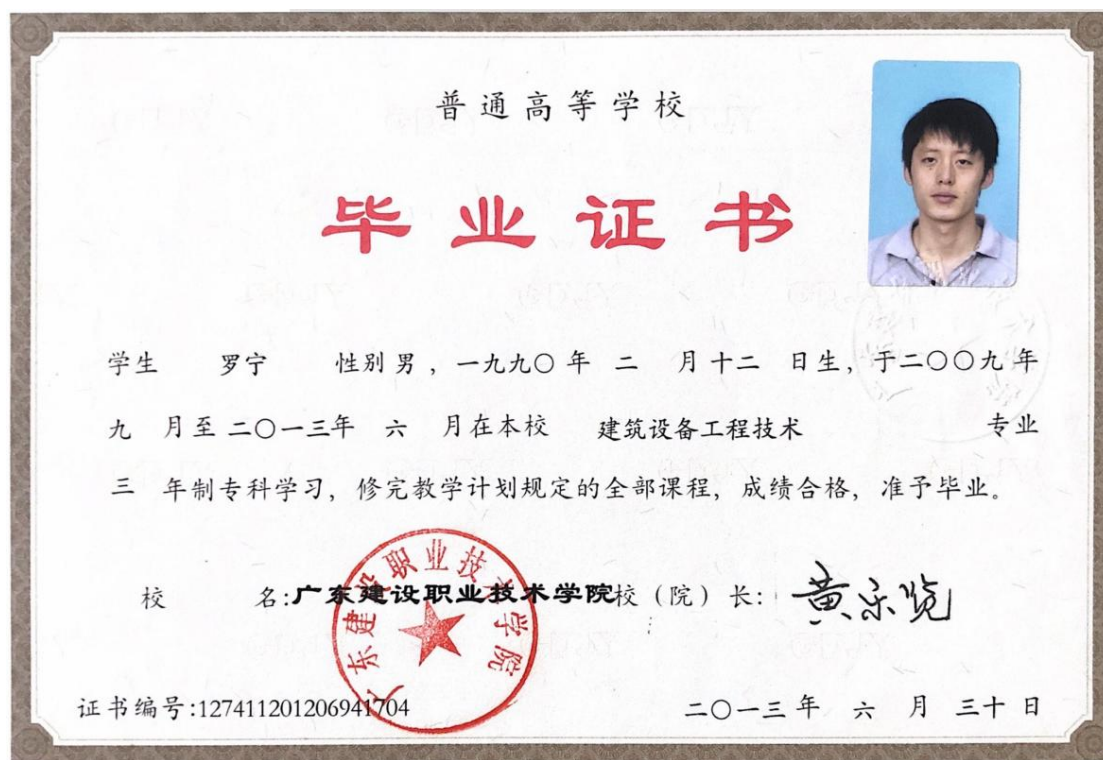 普通高等学校
毕业证书
学生 罗宁 性别男，一九九〇年 二 月十二 日生，于二〇〇九年
九 月至二〇一三年 六 月在本校 建筑设备工程技术 专业
三 年制专科学习，修完教学计划规定的全部课程，成绩合格，准予毕业。
广东建设职业技术学院
校 名:广东建设职业技术学院校（院）长: 黄乐览
证书编号:127411201206941704 二〇一三年 六 月 三十 日